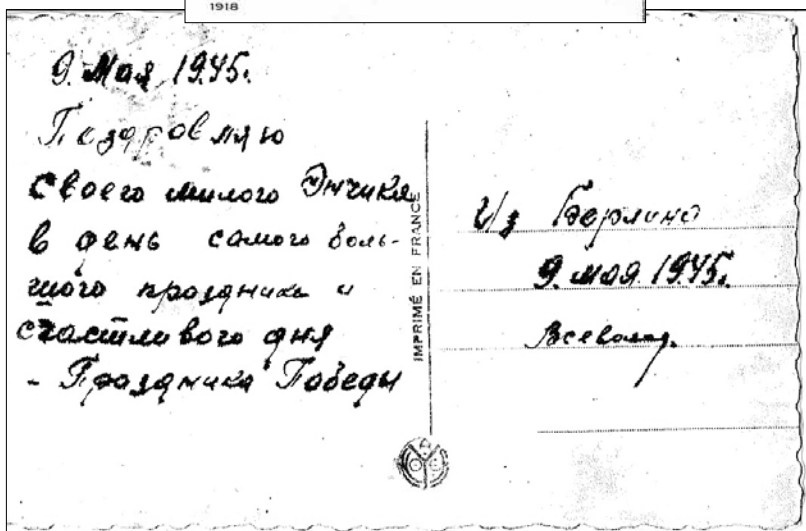 1918
9. Мая 1945.
Поздровляю
своего милого Энчика
в день самого боль-
шого праздника и
счастливого дня
- Праздника Победы
IMPRIMÉ EN FRANCE
Из Берлина
9. мая 1945.
Всеволод.